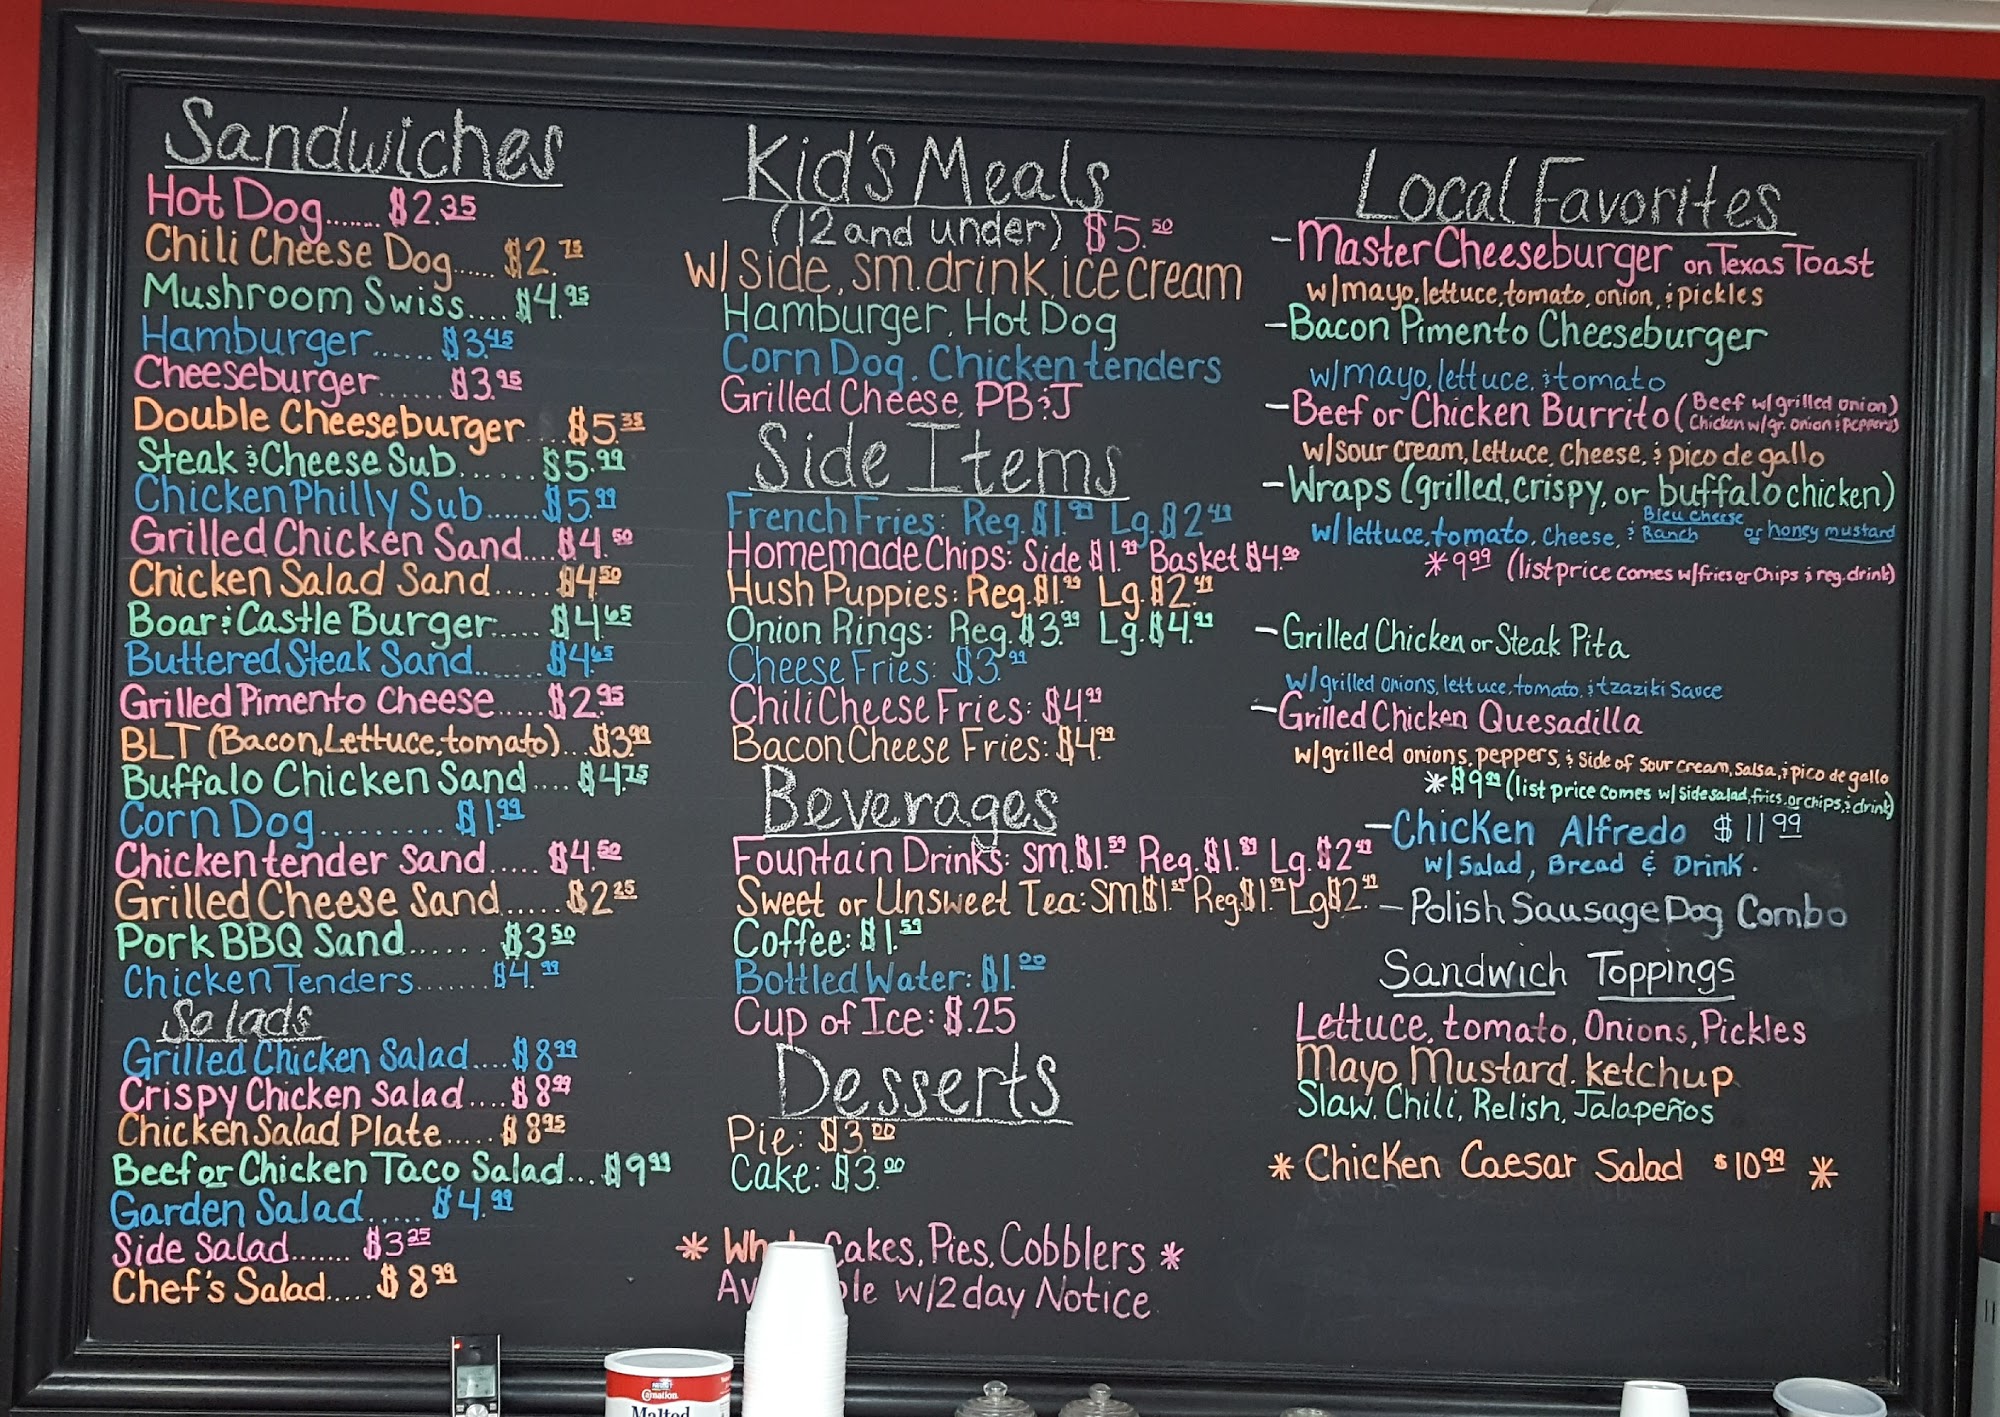 Sandwiches
Hot Dog....... $2.35
Chili Cheese Dog..... $2.75
Mushroom Swiss.... $4.95
Hamburger...... $3.45
Cheeseburger....... $3.95
Double Cheeseburger... $5.35
Steak & Cheese Sub...... $5.99
Chicken Philly Sub...... $5.99
Grilled Chicken Sand... $4.50
Chicken Salad Sand..... $4.50
Boar & Castle Burger..... $4.65
Buttered Steak Sand...... $4.65
Grilled Pimento Cheese..... $2.95
BLT (Bacon, Lettuce, tomato)... $3.99
Buffalo Chicken Sand.... $4.75
Corn Dog.......... $1.99
Chicken tender Sand..... $4.50
Grilled Cheese Sand...... $2.25
Pork BBQ Sand...... $3.50
Chicken Tenders....... $4.99
Salads
Grilled Chicken Salad.... $8.99
Crispy Chicken Salad.... $8.99
Chicken Salad Plate..... $8.95
Beef or Chicken Taco Salad... $9.99
Garden Salad..... $4.99
Side Salad....... $3.25
Chef's Salad..... $8.99
Kid's Meals
(12 and under) $5.50
w/ side, sm. drink, ice cream
Hamburger, Hot Dog
Corn Dog, Chicken tenders
Grilled Cheese, PB&J
Side Items
French Fries: Reg. $1.99 Lg. $2.49
Homemade Chips: Side $1.99 Basket $4.00
Hush Puppies: Reg. $1.99 Lg. $2.49
Onion Rings: Reg. $3.99 Lg. $4.99
Cheese Fries: $3.99
Chili Cheese Fries: $4.99
Bacon Cheese Fries: $4.99
Beverages
Fountain Drinks: sm. $1.59 Reg. $1.89 Lg. $2.49
Sweet or Unsweet Tea: SM. $1. Reg. $1. Lg $2.49
Coffee: $1.59
Bottled Water: $1.00
Cup of Ice: $.25
Desserts
Pie: $3.00
Cake: $3.00
* Cakes, Pies, Cobblers *
w/2 day Notice
Local Favorites
- Master Cheeseburger on Texas Toast
w/mayo, lettuce, tomato, onion, & pickles
- Bacon Pimento Cheeseburger
w/mayo, lettuce, & tomato
- Beef or Chicken Burrito (Beef w/grilled onion)
(Chicken w/gr. onion & peppers)
w/sour cream, lettuce, cheese, & pico de gallo
- Wraps (grilled, crispy, or buffalo chicken)
w/ lettuce, tomato, cheese, & Bleu Cheese Ranch or honey mustard
* 9.99 (list price comes w/fries or chips & reg. drink)
- Grilled Chicken or Steak Pita
w/grilled onions, lettuce, tomato, & tzaziki sauce
- Grilled Chicken Quesadilla
w/grilled onions, peppers, & side of sour cream, salsa, & pico de gallo
* $9.99 (list price comes w/ side salad, fries, or chips, & drink)
- Chicken Alfredo $11.99
w/ Salad, Bread & Drink.
- Polish Sausage Dog Combo
Sandwich Toppings
Lettuce, tomato, Onions, Pickles
Mayo, Mustard, ketchup
Slaw, Chili, Relish, Jalapeños
* Chicken Caesar Salad $10.99 *
Carnation
Malted